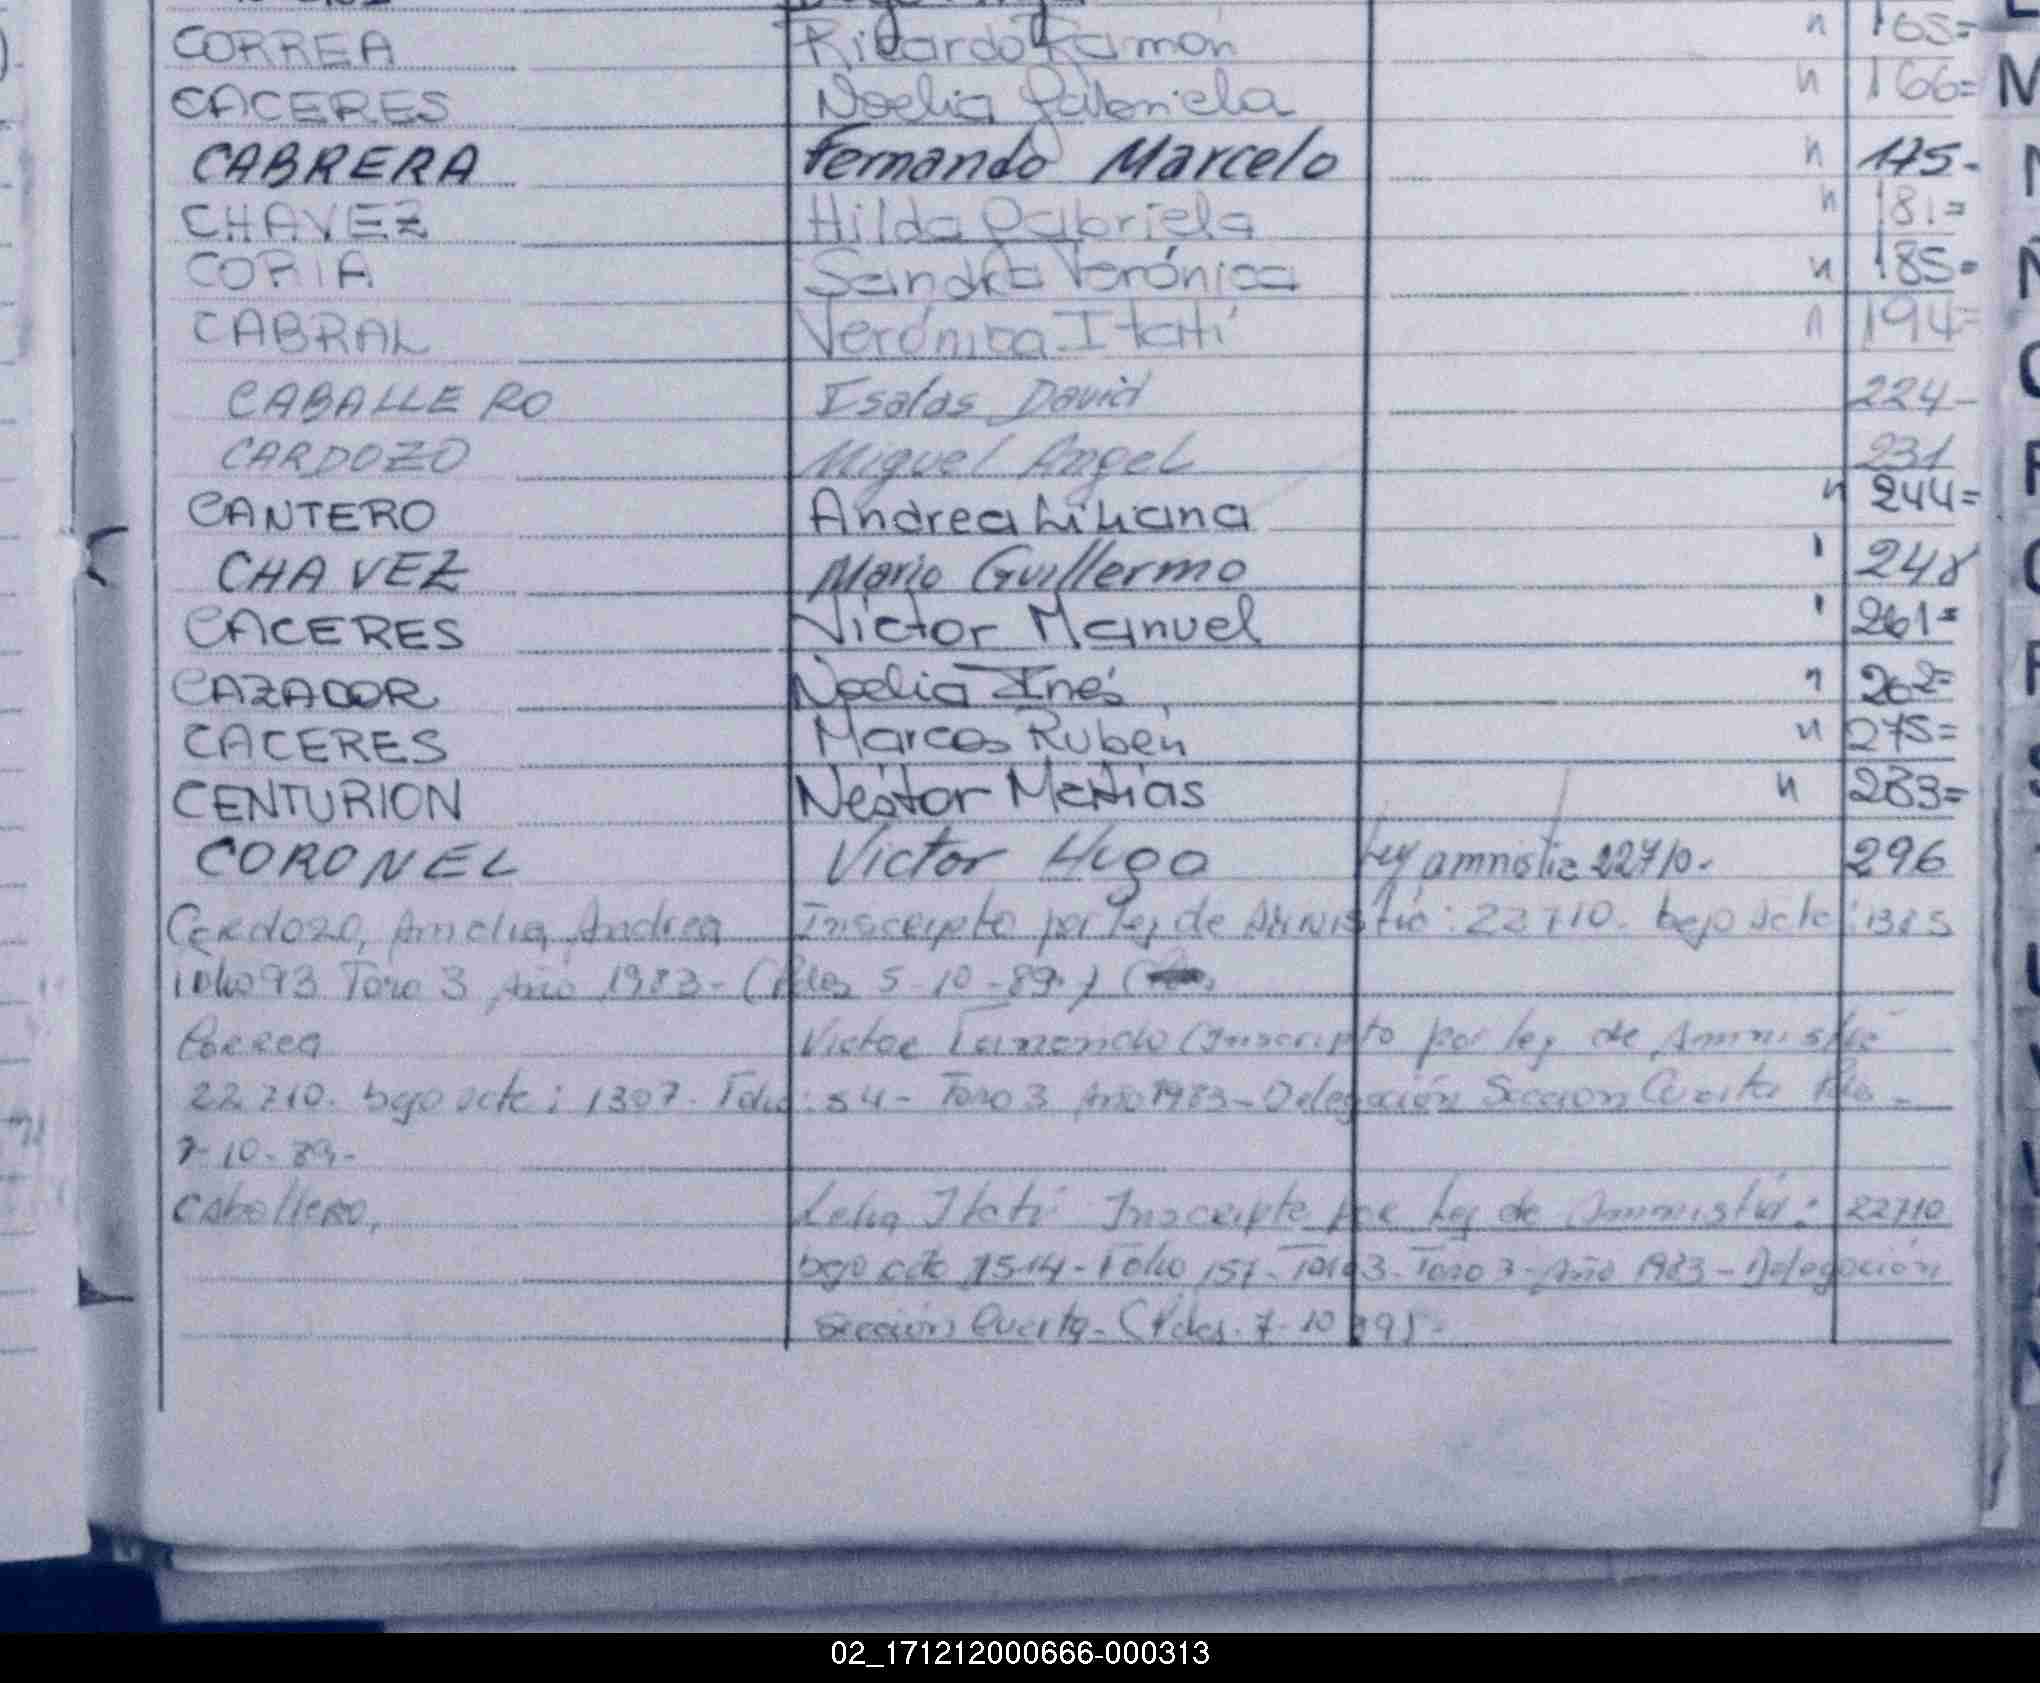 CORREA Ricardo Ramón " 165=
CACERES Noelia Gabriela " 166=
CABRERA Fernando Marcelo " 175-
CHAVEZ Hilda Gabriela " 181=
CORIA Sandra Verónica " 185=
CABRAL Verónica Itatí " 194=
CABALLERO Isaías David 224-
CARDOZO Miguel Angel 231
CANTERO Andrea Liliana " 244=
CHAVEZ Mario Guillermo ' 248
CACERES Victor Manuel ' 261=
CAZADOR Noelia Inés " 262=
CACERES Marcos Rubén " 275=
CENTURION Néstor Matías " 283=
CORONEL Victor Hugo Ley amnistia 22710.- 296
Cardozo, Amelia Andrea Inscripto por Ley de Amnistía: 22710. bajo acta: 1385
folio 93 Tomo 3 Año 1983- (Pdas 5-10-89.)
Correa Victor Fernando (Inscripto por ley de Amnistía
22.710. bajo acta: 1307. Folio: 54- Tomo 3 Año 1983- Delegación Sección Cuarta Pdas-
7-10-89.-
Caballero, Lelia Itatí Inscripta por Ley de Amnistía: 22710
bajo acta 1514- Folio 157- Tomo 3- Tomo 3- Año 1983- Delegación
Sección Cuarta- (Pdas. 7-10-89).-
02_171212000666-000313